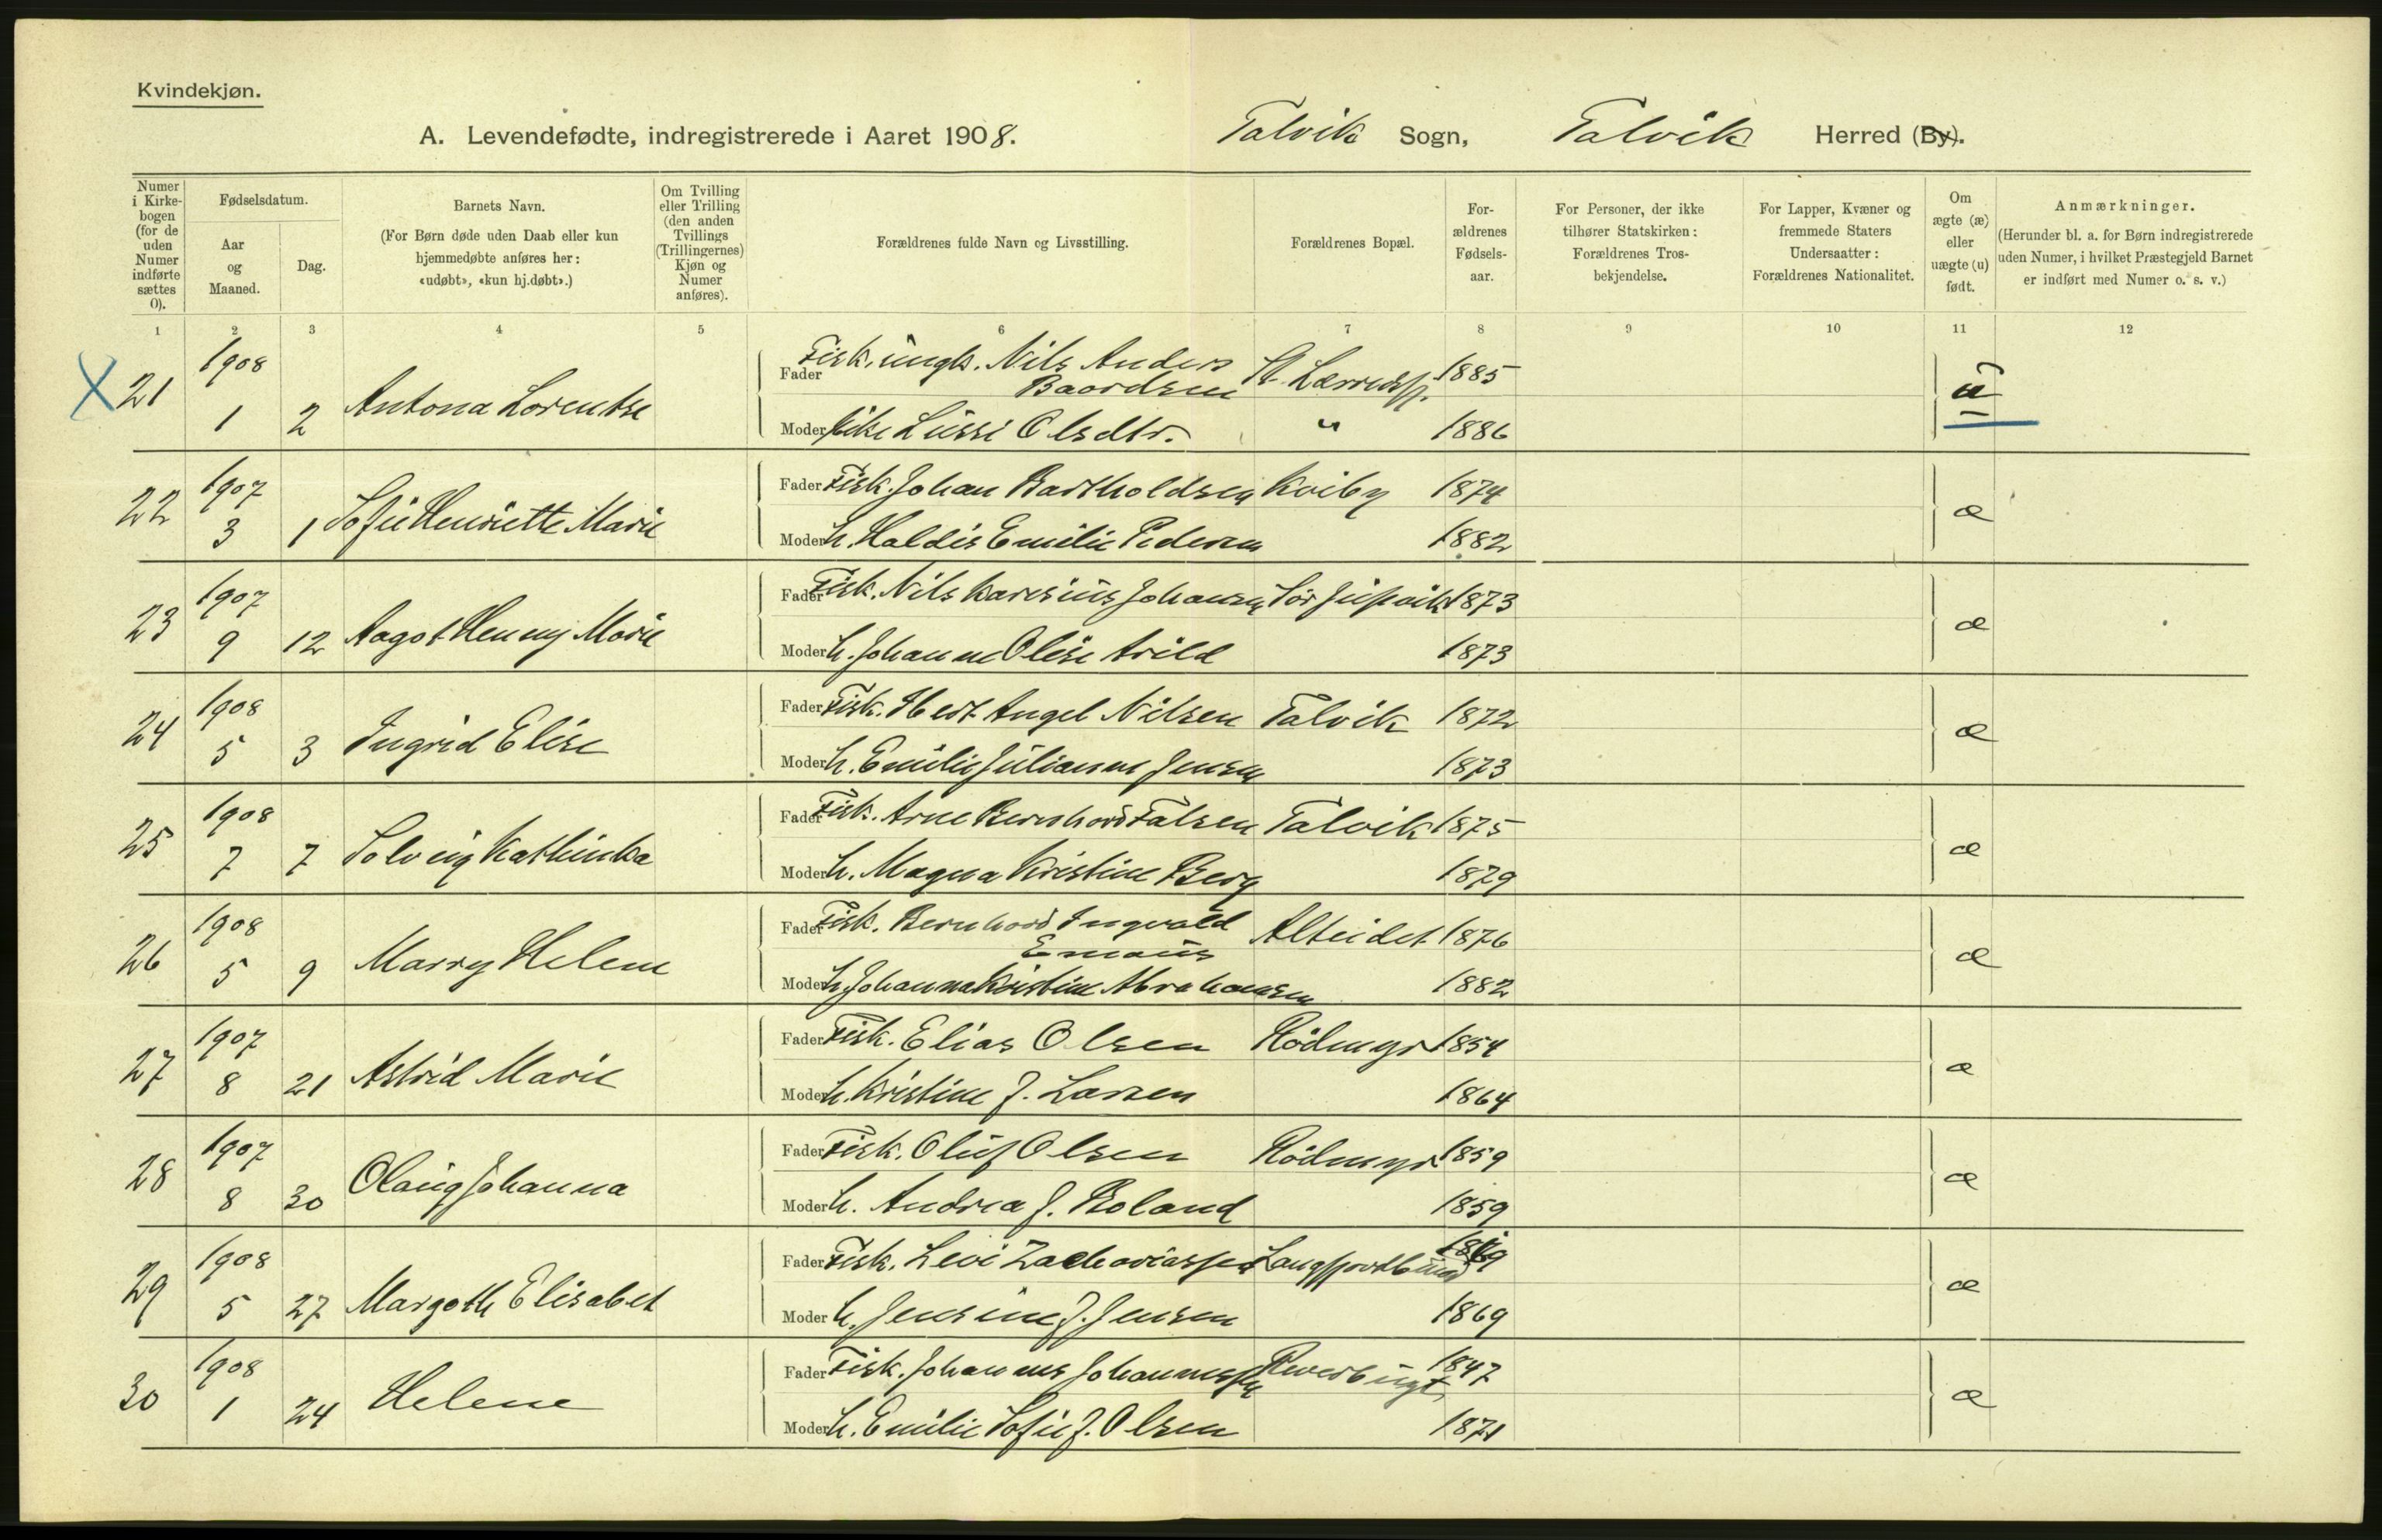 Kvindekjøn.
A. Levendefødte, indregistrerede i Aaret 1908. Talvik Sogn, Talvik Herred (By).
Numer i Kirkebogen (for de uden Numer indførte sættes 0).
Fødselsdatum.
Aar og Maaned.
Dag.
Barnets Navn.
(For Børn døde uden Daab eller kun hjemmedøbte anføres her: «udøbt», «kun hj.døbt».)
Om Tvilling eller Trilling (den anden Tvillings (Trillingernes) Kjøn og Numer anføres).
Forældrenes fulde Navn og Livsstilling.
Forældrenes Bopæl.
Forældrenes Fødselsaar.
For Personer, der ikke tilhører Statskirken: Forældrenes Trosbekjendelse.
For Lapper, Kvæner og fremmede Staters Undersaatter: Forældrenes Nationalitet.
Om ægte (æ) eller uægte (u) født.
Anmærkninger.
(Herunder bl. a. for Børn indregistrerede uden Numer, i hvilket Præstegjeld Barnet er indført med Numer o. s. v.)
1 2 3 4 5 6 7 8 9 10 11 12
X 21 1908 1 2 Antona Lorentse
Fader Fisk. ungk. Nils Anders Baordsen St. 1885
Moder Lussi Olsdtr. " 1886
u
22 1907 3 1 Sofie Henriette Marie
Fader Fisk. Johan Bartholdsen Kviby 1874
Moder h. Haldis Emilie Pedersen 1882
æ
23 1907 9 12 Aagot Henny Marie
Fader Fisk. Nils Karesius Johansen 1873
Moder h. Johanne Olise Arild 1873
æ
24 1908 5 3 Ingrid Elise
Fader Fisk. Hert. Angel Nilsen Talvik 1872
Moder h. Emilie Julianne Jensen 1873
æ
25 1908 7 7 Solveig Kathinka
Fader Fisk. Arne Bernhard Falsen Talvik 1875
Moder h. Magna Kristine Berg 1879
æ
26 1908 5 9 Marry Helene
Fader Fisk. Bernhard Ingvald Emaus Alteidet 1876
Moder h. Johanna Kristine Abrahamsen 1882
æ
27 1907 8 21 Astrid Marie
Fader Fisk. Elias Olsen Rödmyr 1854
Moder h. Kristine J. Larsen 1864
æ
28 1907 8 30 Olaug Johanna
Fader Fisk. Oluf Olsen Rödmyr 1859
Moder h. Andrea J. Boland 1859
æ
29 1908 5 27 Margoth Elisabet
Fader Fisk. Levi Zachariassen Langfjordbund
Moder h. Jensine J. Jensen 1869
æ
30 1908 1 24 Helene
Fader Fisk. Johannes Johannessen Reverbugt 1847
Moder h. Emilie Sofie J. Olsen 1871
æ